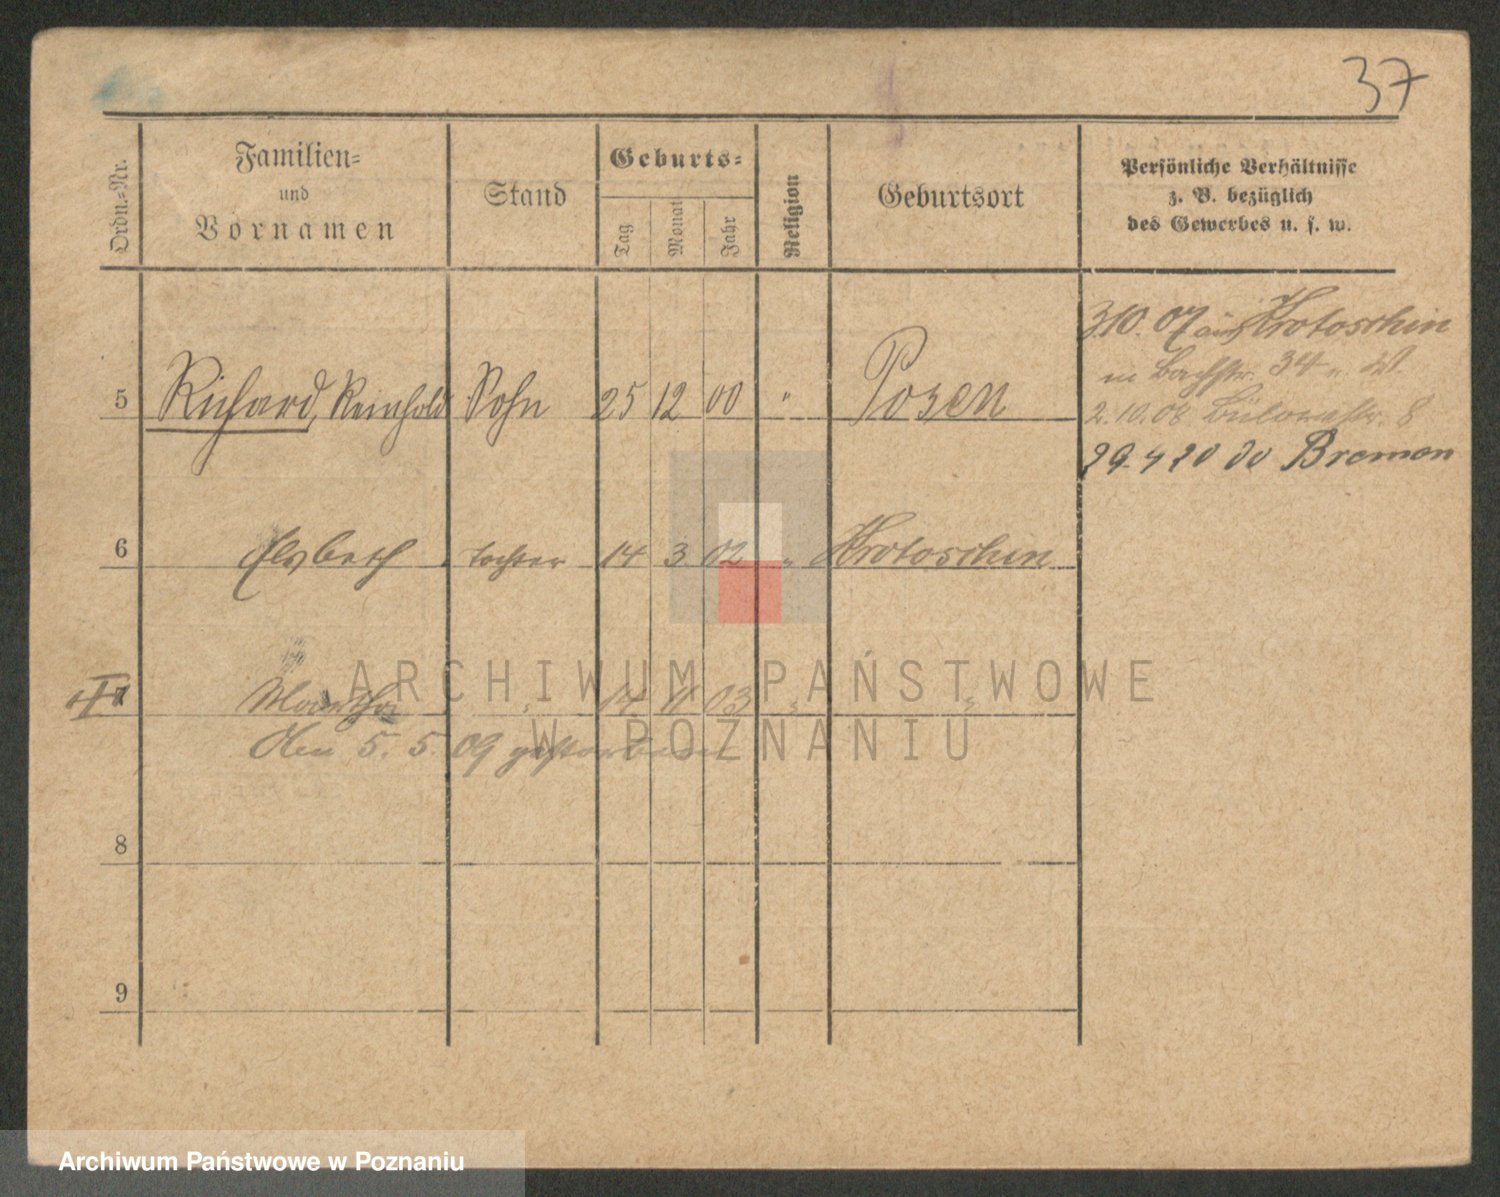 37
Ordn.-Nr.
Familien-
und
Vornamen
Stand
Geburts-
Tag
Monat
Jahr
Religion
Geburtsort
Persönliche Verhältnisse
z. B. bezüglich
des Gewerbes u. s. w.
3.10.07 aus Krotoschin
in Bachstr. 34
5 Richard, Reinhold Sohn 25 12 00 " Posen
2.10.08 Bülowstr. 8
29.4 20 Bremen
6 Elsbeth Tochter 14 3 02 " Krotoschin
7 Martha " 14 11 03 " "
Den 5. 5. 09 gestorben
8
9
ARCHIWUM PAŃSTWOWE
W POZNANIU
Archiwum Państwowe w Poznaniu